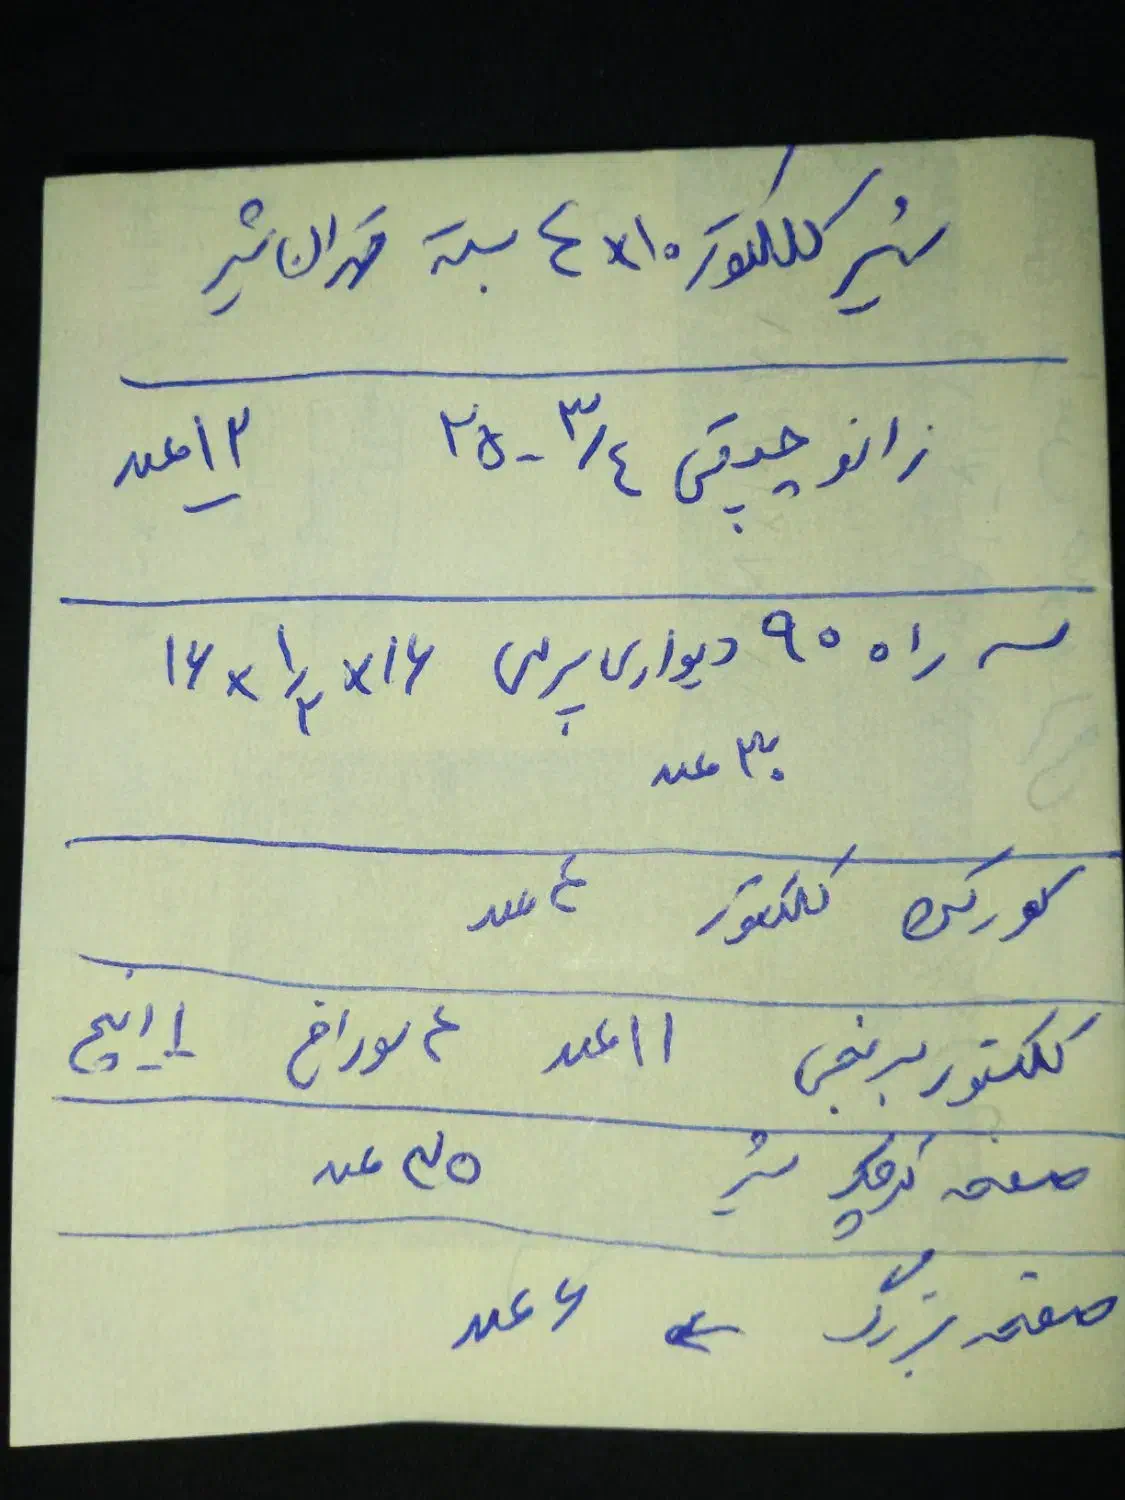 شیر کلکتور ۱۰×٤ بسته تهران شیر
زانو چپقی ۳/٤ - ۲۵ ۱۲ عدد
سه راه ۹۰ دیواری پرسی ۱۶ × ۱/۲ × ۱۶
۳۰ عدد
کورکن کلکتور ۴ عدد
کلکتور برنجی ۱۱ عدد ۴ سوراخ ۱ اینچ
صفحه کوچک شیر ۳۵ عدد
صفحه بزرگ ← ۶ عدد